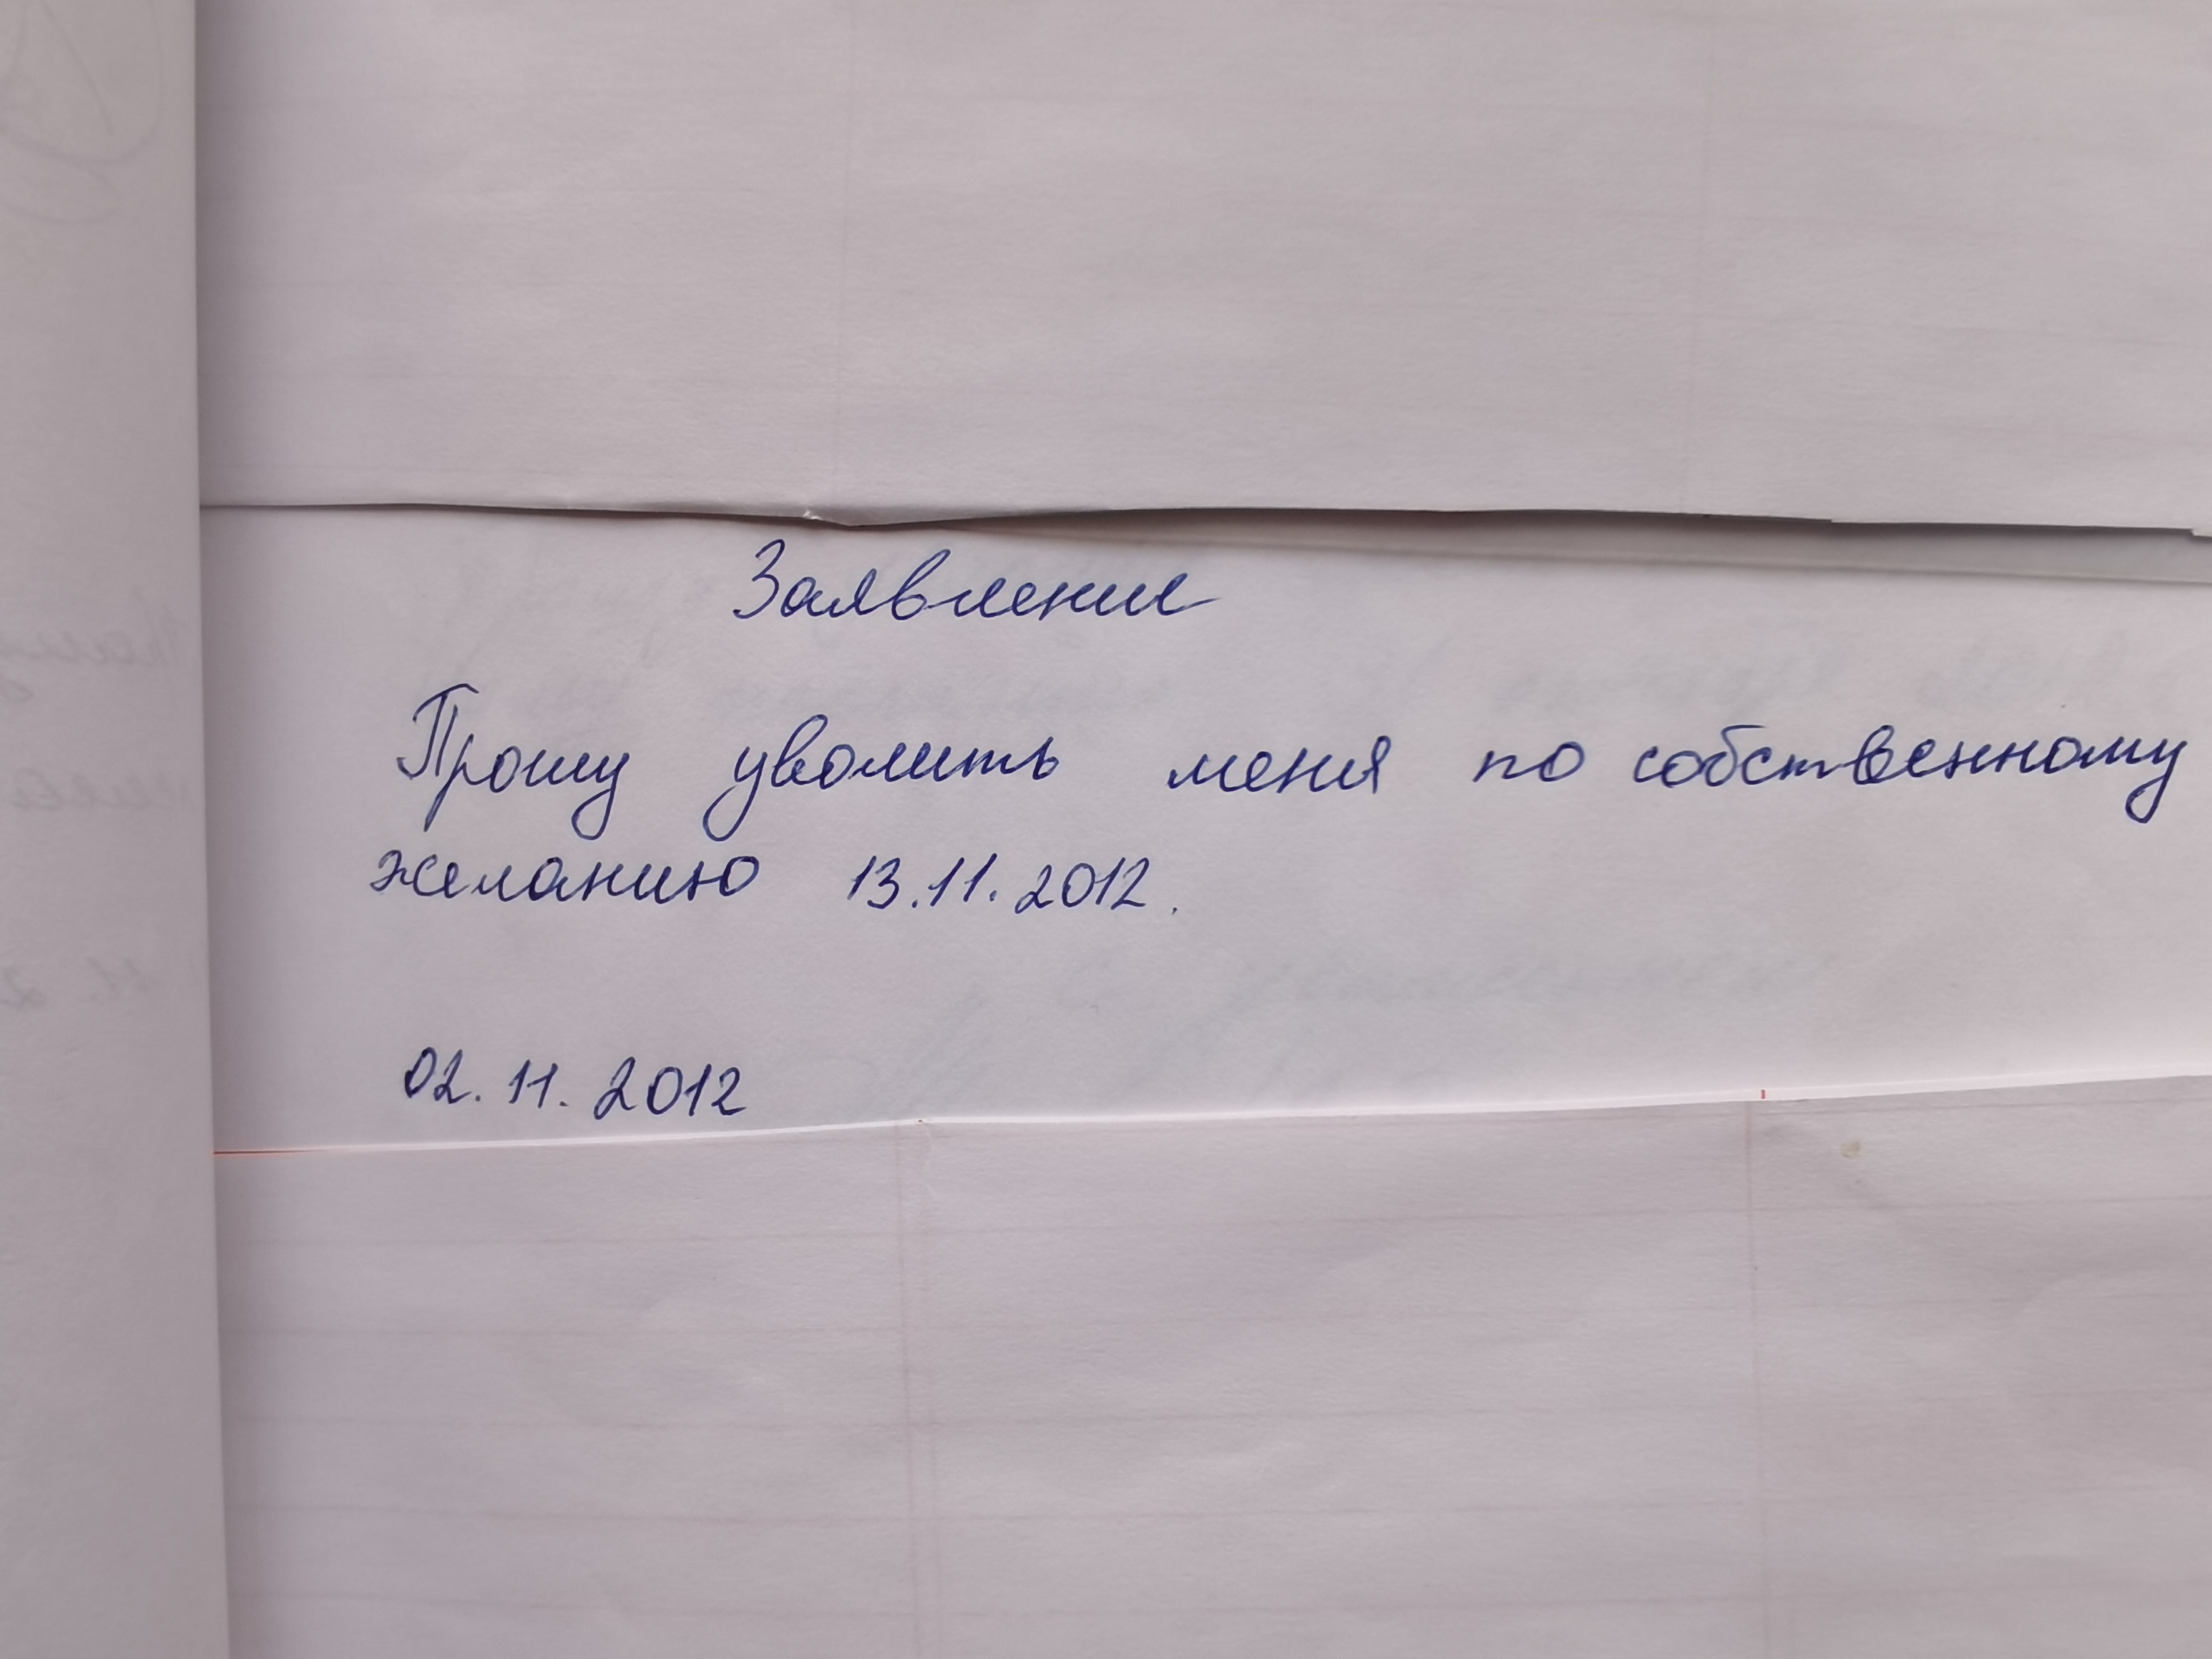 Заявление
Прошу уволить меня по собственному
желанию 13.11.2012.
02.11.2012